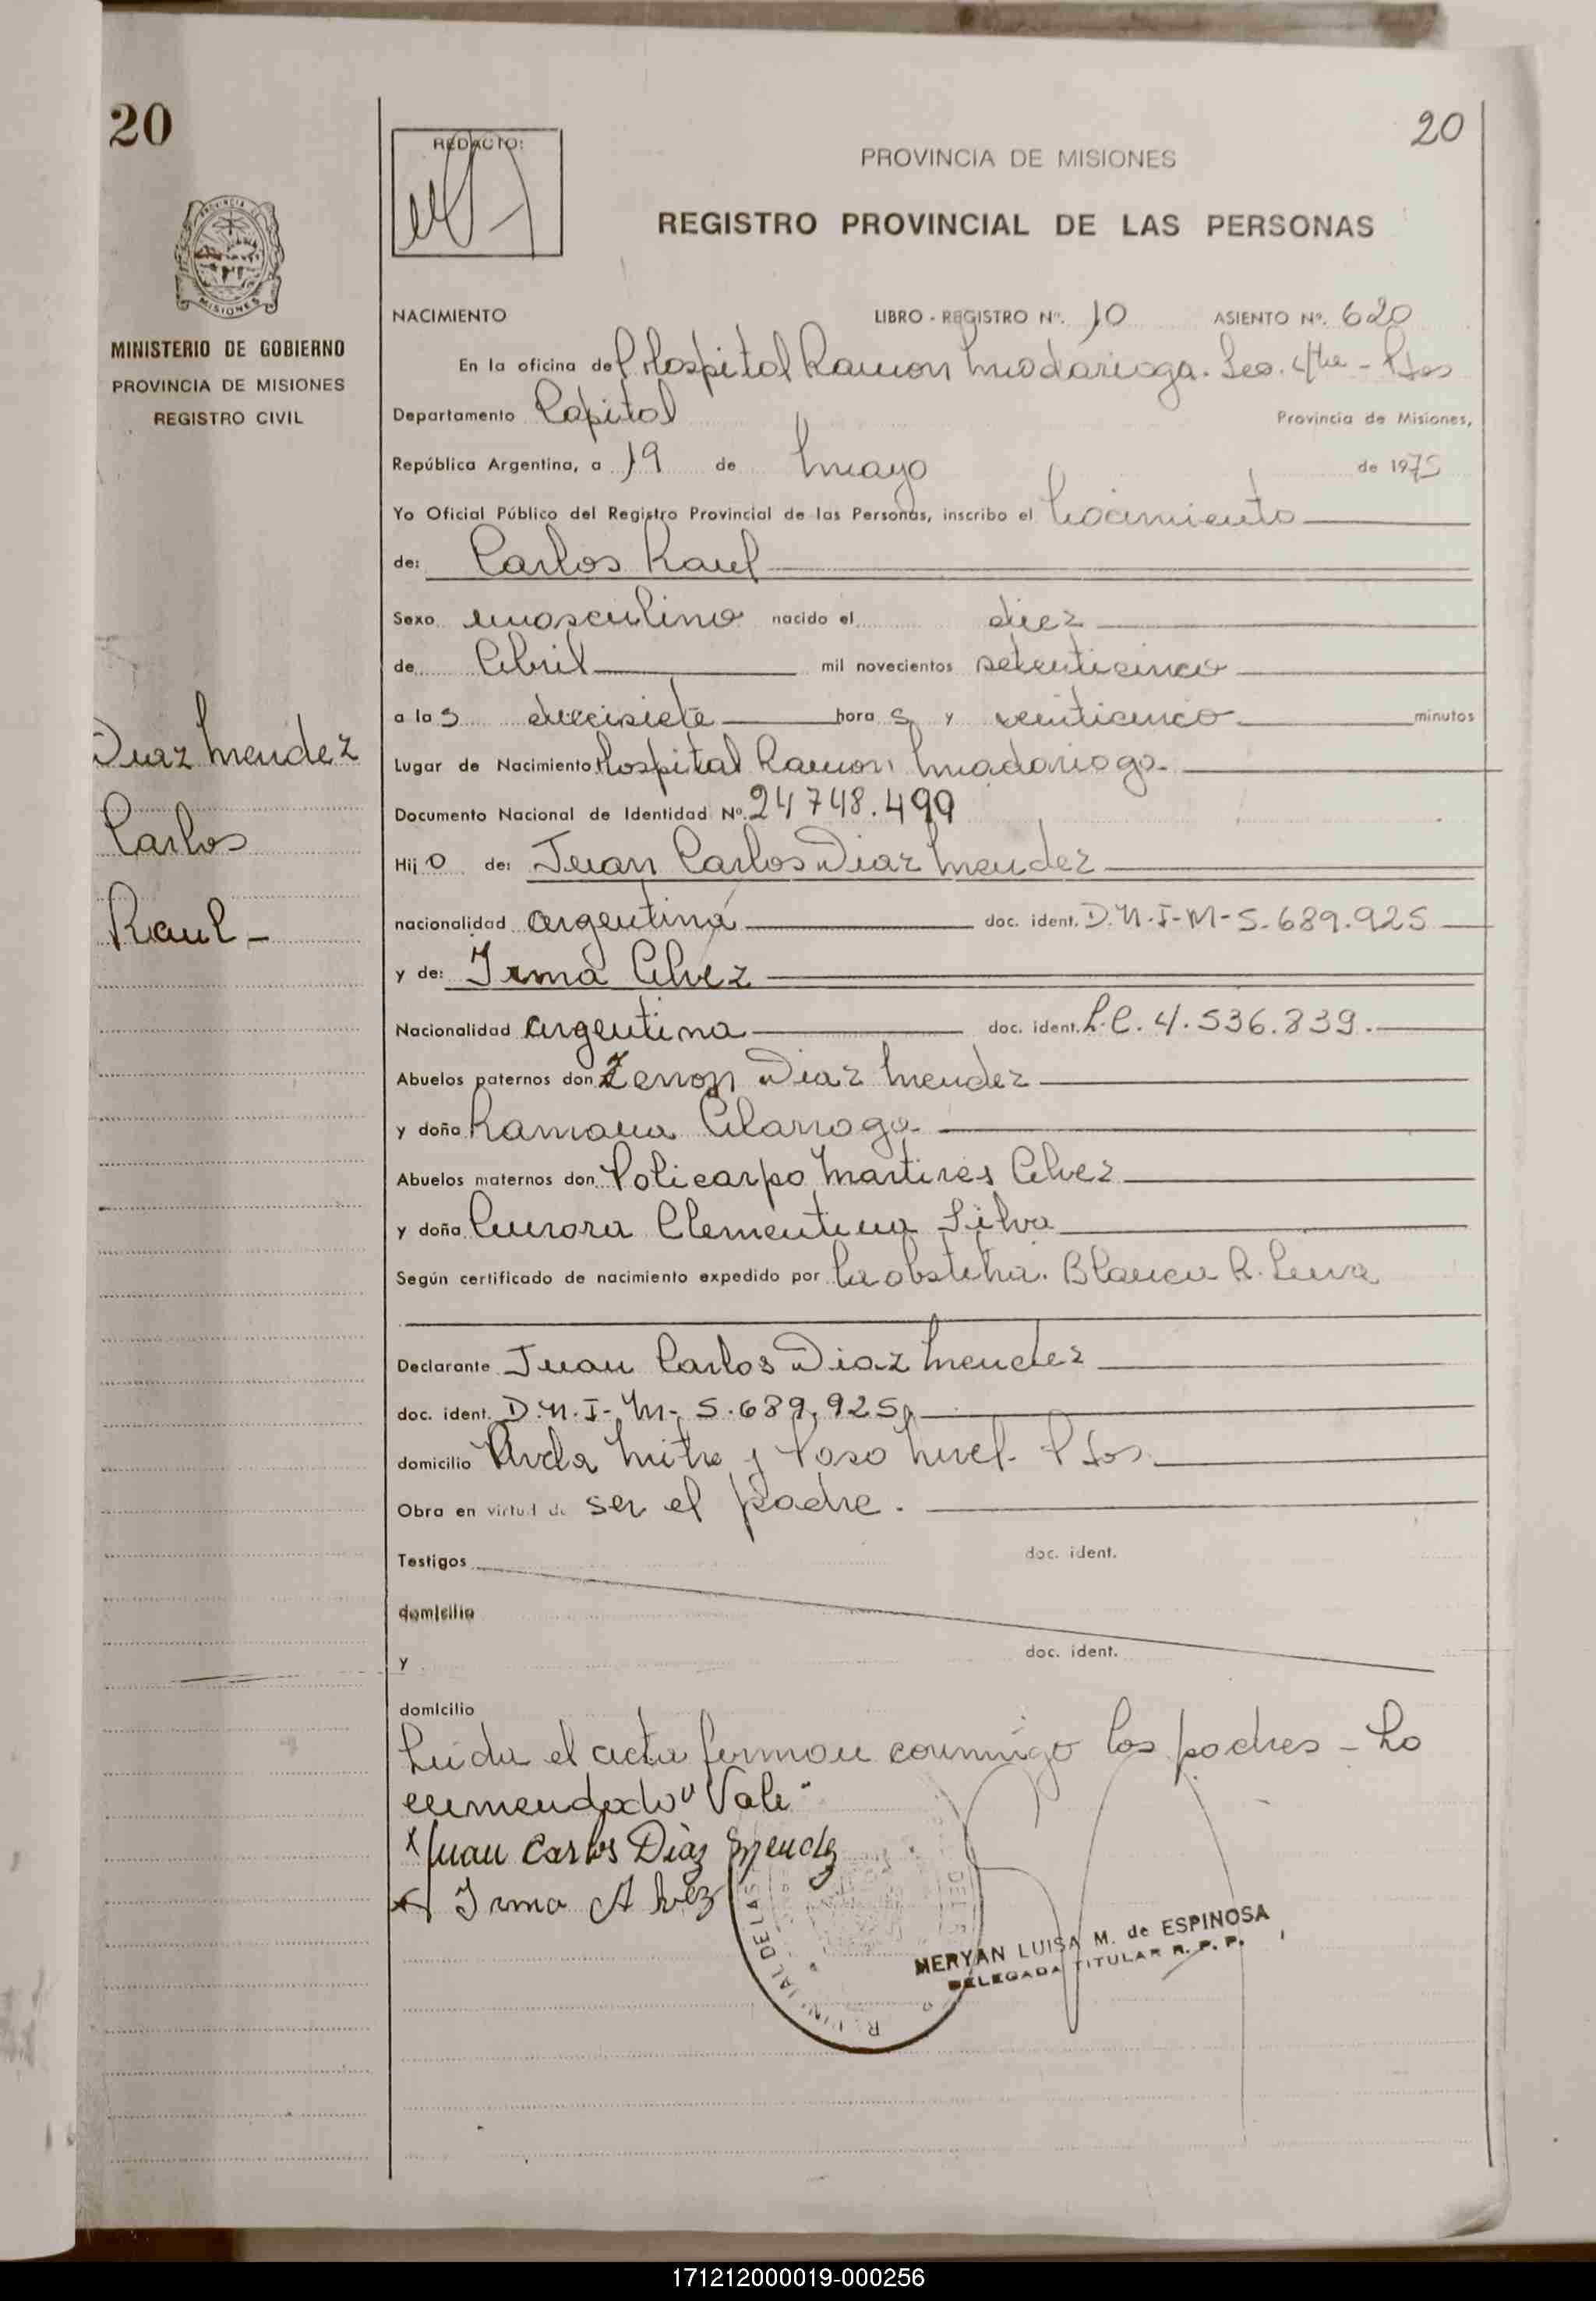 20
20
REDACTO:
PROVINCIA DE MISIONES
REGISTRO PROVINCIAL DE LAS PERSONAS
MISIONES
MINISTERIO DE GOBIERNO
PROVINCIA DE MISIONES
REGISTRO CIVIL
NACIMIENTO LIBRO - REGISTRO Nº. 10 ASIENTO Nº. 620
En la oficina del Hospital Ramon Madariaga. Sec. 4ta - Pdas
Departamento Capital Provincia de Misiones,
República Argentina, a 19 de mayo de 1975
Yo Oficial Público del Registro Provincial de las Personas, inscribo el Nacimiento
de: Carlos Raul
Sexo masculino nacido el diez
de Abril mil novecientos setenticinco
a las diecisiete horas y veinticinco minutos
Diaz Mendez
Carlos
Raul -
Lugar de Nacimiento Hospital Ramon Madariaga -
Documento Nacional de Identidad Nº. 24748.499
Hijo de: Juan Carlos Diaz Mendez
nacionalidad argentina doc. ident. D.N.I-M-5.689.925
y de: Irma Alvez
Nacionalidad argentina doc. ident. L.C. 4.536.839.
Abuelos paternos don Zenon Diaz Mendez
y doña Ramona Alarroga
Abuelos maternos don Policarpo Martires Alvez
y doña Aurora Clementina Silva
Según certificado de nacimiento expedido por la obstetra. Blanca R. Leiva
Declarante Juan Carlos Diaz Mendez
doc. ident. D.N.I-M-5.689.925
domicilio Avda Mitre y Paso Nivel - Pdas.
Obra en virtud de ser el padre.
Testigos doc. ident.
domicilio
y doc. ident.
domicilio
Leida el acta firman conmigo los padres - Lo
enmendado "Vale"
x Juan Carlos Diaz Mendez
x Irma Alvez
MERYAN LUISA M. de ESPINOSA
DELEGADA TITULAR R. P. P.
171212000019-000256